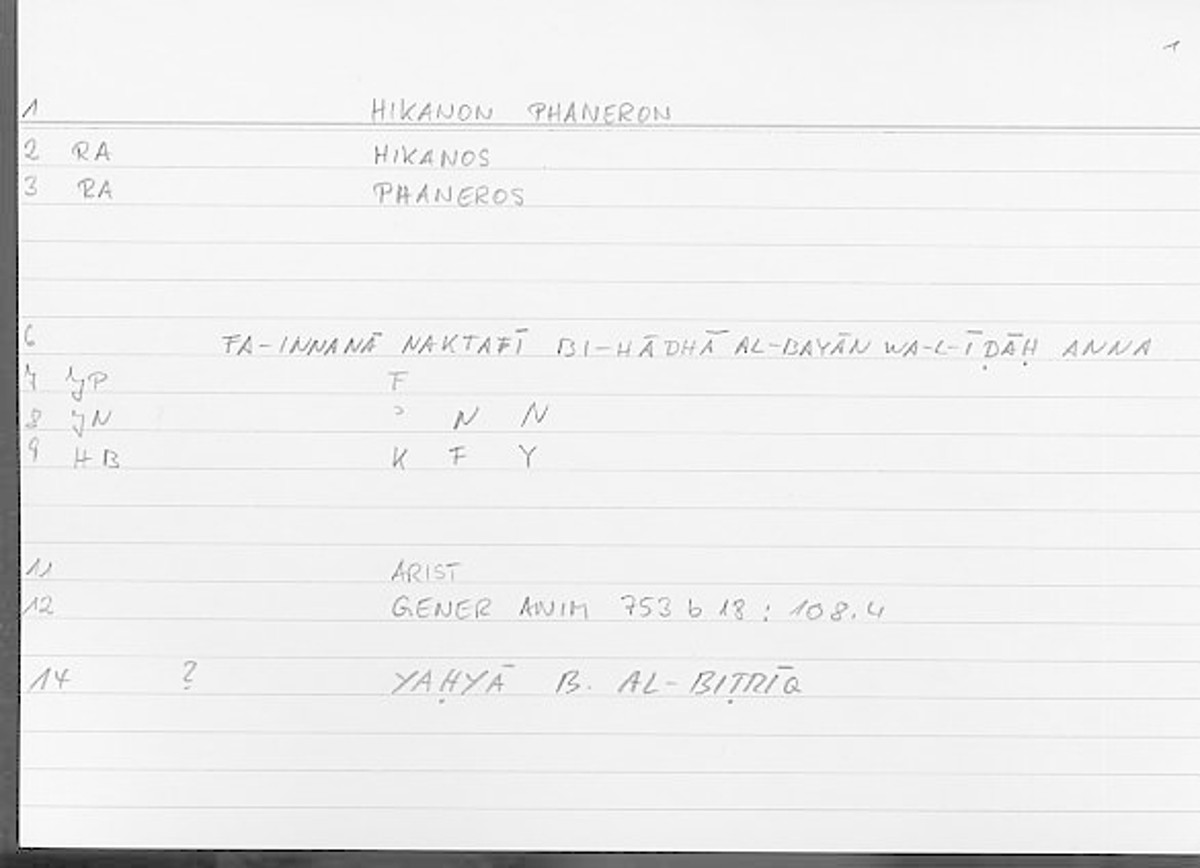 1
1 HIKANON PHANERON
2 RA HIKANOS
3 RA PHANEROS
6 FA-INNANĀ NAKTAFĪ BI-HĀDHĀ AL-BAYĀN WA-L-ĪḌĀḤ ANNA
7 JP F
8 JN ʾ N N
9 HB K F Y
11 ARIST
12 GENER ANIM 753 b 18 : 108.4
14 ? YAḤYĀ B. AL-BIṬRĪQ